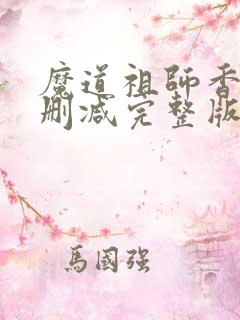 魔道祖師香
刪减完整版
馬國强